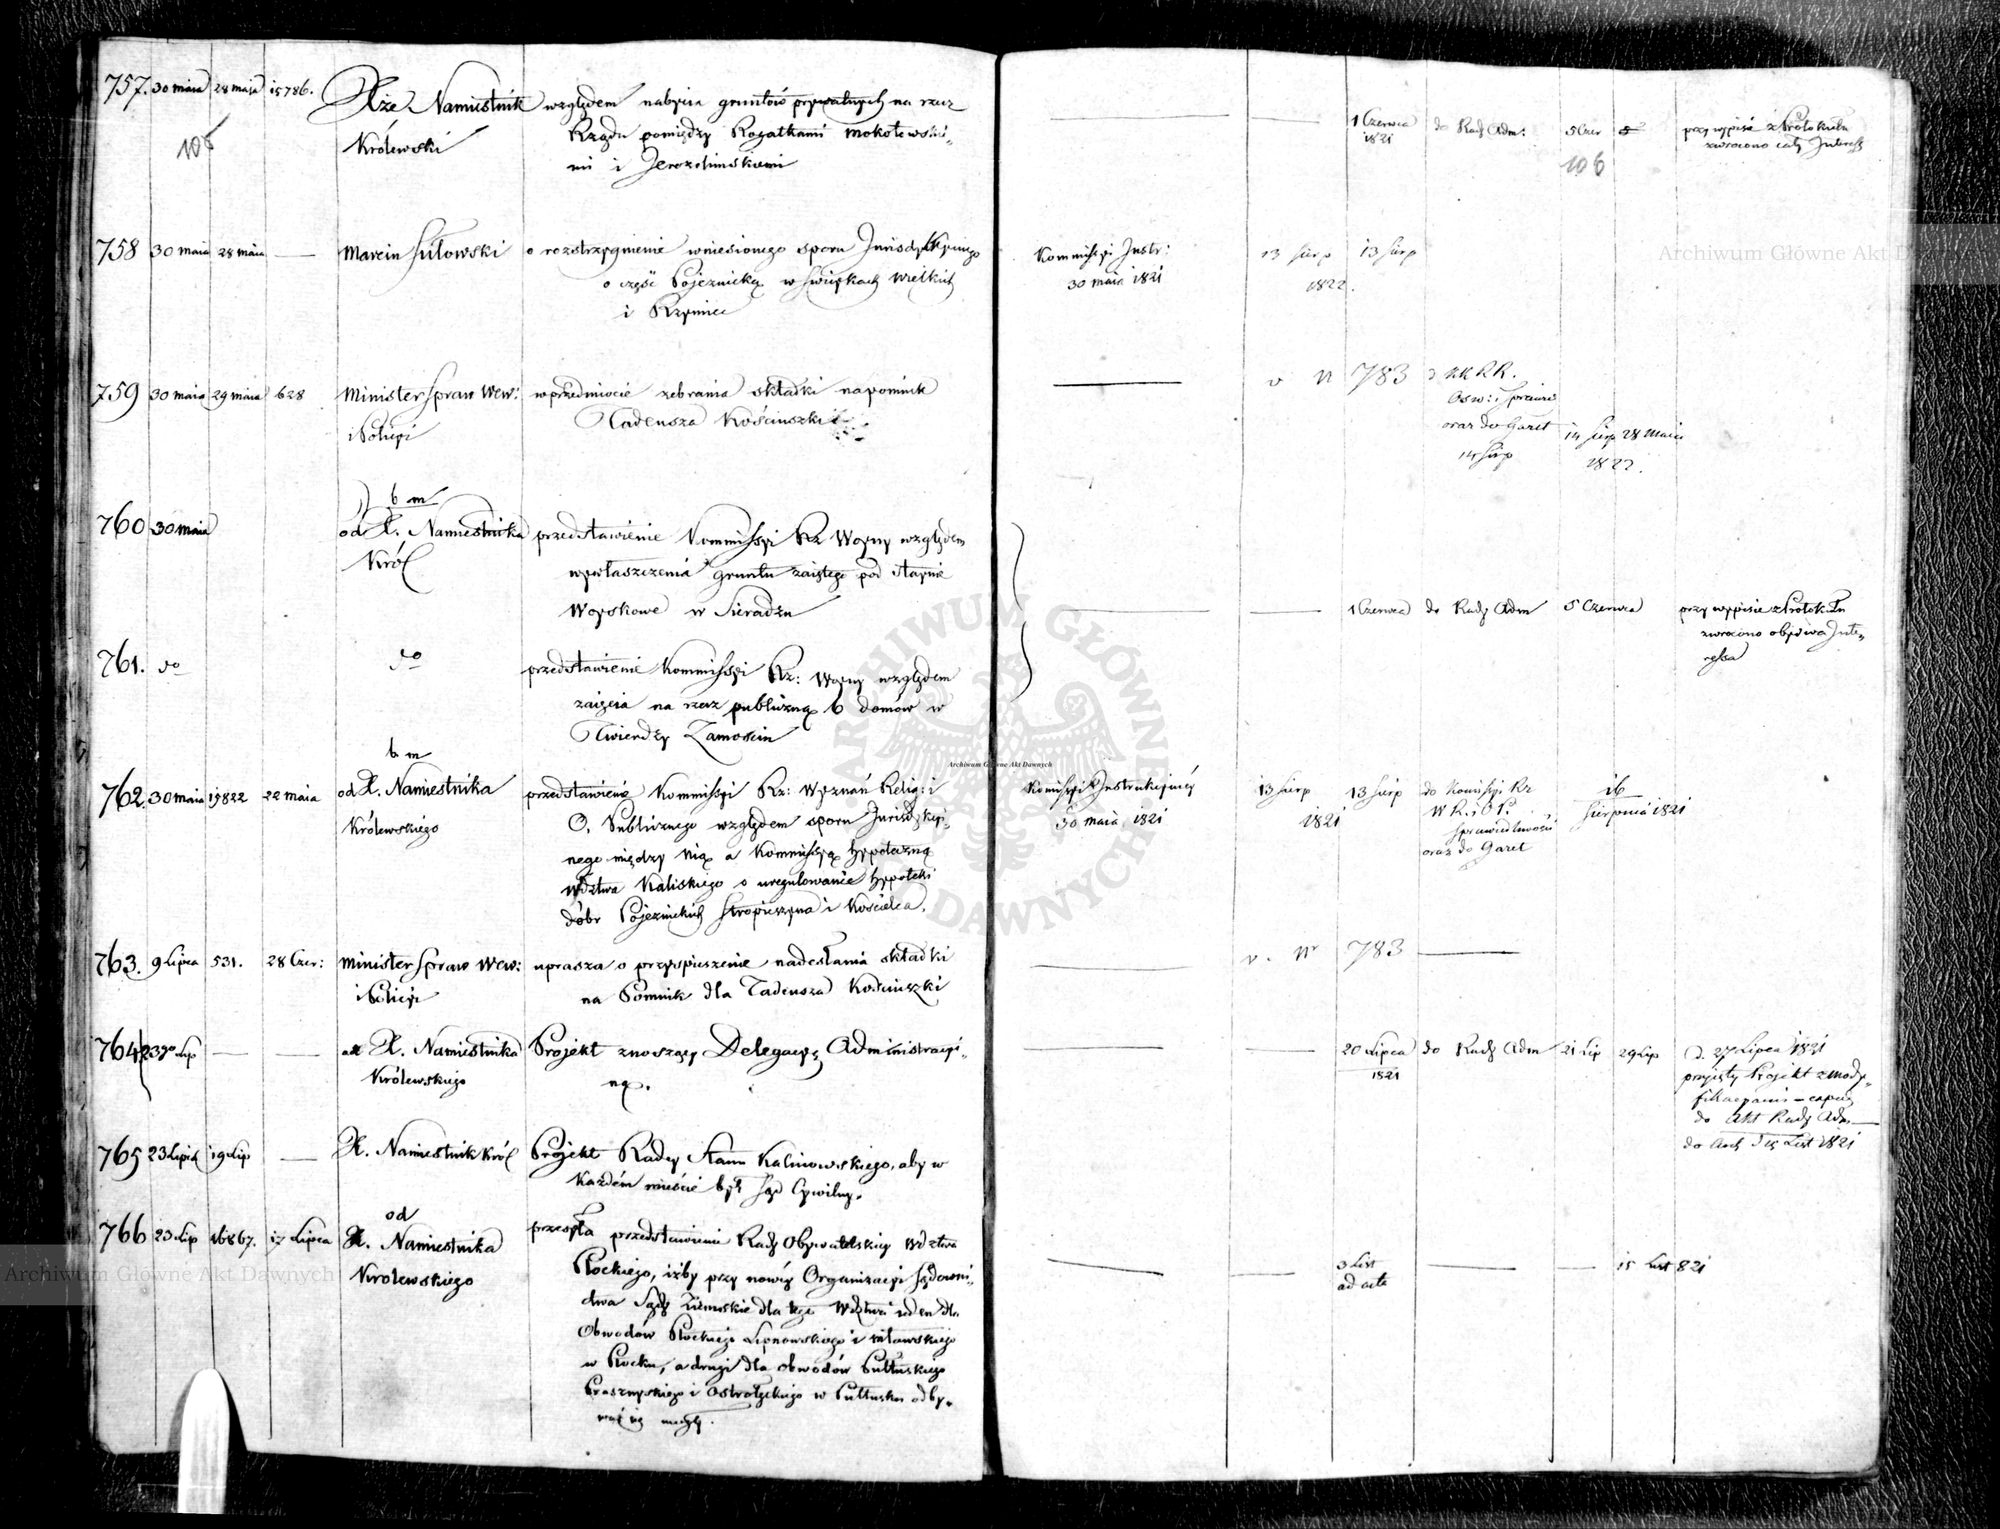 757. 30 maia 28 maja 15786. Xże Namiestnik względem nabycia gruntów prywatnych na rzecz
Królewski Rządu pomiędzy Rogatkami Mokotowski-
mi i Jerozolimskiemi
106
1 Czerwca do Rady Adm: 5 Czer przy wypisie z Protokułu
1821 zwrócono cały Interess
106
758 30 maia 28 maia Marcin Sułowski o rozstrzygnienie wniesionego sporu Jurisdykcyinego
o część Pojeznicką w Świątkach Wielkich
i
Kommissyi Instr: 13 Sierp 13 Sierp
30 maia 1821 1822.
759 30 maia 29 maia 628 Minister Spraw Wew: w przedmiocie zebrania składki na pomnik
i Policyi Tadeusza Kościuszki
v N 783 KRR.
oraz do Gazet 14 Sierp 28 Maia
14 Sierp 1822.
760 30 maia
b m
od X. Namiestnika przedstawienie Kommissyi Rz Woyny względem
Król wywłaszczenia gruntu zaiętego pod staynie
Woyskowe w Sieradzu
1 Czerwca do Rady Adm 5 Czerwca przy wypisie z Protokułu
zwrócono obydwa Inte-
ressa
761. do do przedstawienie Kommissyi Rz: Woyny względem
zaięcia na rzecz publiczną 6 domów w
Twierdzy Zamościu
b m
762. 30 maia 15822 22 maia od X. Namiestnika przedstawienie Kommissyi Rz: Wyznań Relig: i
Królewskiego O. Publicznego względem sporu Jurisdykcyi-
nego między Nią a Kommissyą Hypoteczną
Wdztwa Kaliskiego o uregulowanie Hypoteki
dóbr Pojeznickich Stropieszyna i Kościelca.
Komissyi Instrukcyiney 13 Sierp 13 Sierp do Komissyi Rz 16
30 maia 1821 1821 W R. i O P. Sierpnia 1821
Sprawiedliwości
oraz do Gazet
763. 9 Lipca 531. 28 Czer: Minister Spraw Wew: uprasza o przyspieszenie nadesłania składki
i Policyi na Pomnik dla Tadeusza Kościuszki
v. Nr 783
764 23go Lip od X. Namiestnika Projekt znoszący Delegacyę Administracyi-
Królewskiego ną.
20 Lipca do Rady Adm 21 Lip 29 Lip d. 27 Lipca 1821
1821 przyięty Projekt z mody-
fikacyami
do Akt Rady Adm
765 23 Lipca 19 Lip X. Namiestnik Król Projekt Radcy Stanu Kalinowskiego, aby w
Każdém mieście był Sąd Cywilny.
od
766 23 Lip 16867. 17 Lipca X. Namiestnika przesyła przedstawienie Rady Obywatelskiey Wdztwa
Królewskiego Płockiego, iżby przy nowéy Organizacyi Sądowni-
ctwa Sądy Ziemskie dla tego Wdztwa ieden dla
Obwodów Płockiego Lipnowskiego i Mławskiego
w Płocku, a drugi dla obwodów Pułtuskiego
Prasznyskiego i Ostrołęckiego w Pułtusku odby-
wać się mogły.
3 List 15 List 821
ad acta
Archiwum Główne Akt Dawnych
Archiwum Główne Akt Dawnych
Archiwum Główne Akt Dawnych
ARCHIWUM GŁÓWNE
DAWNYCH